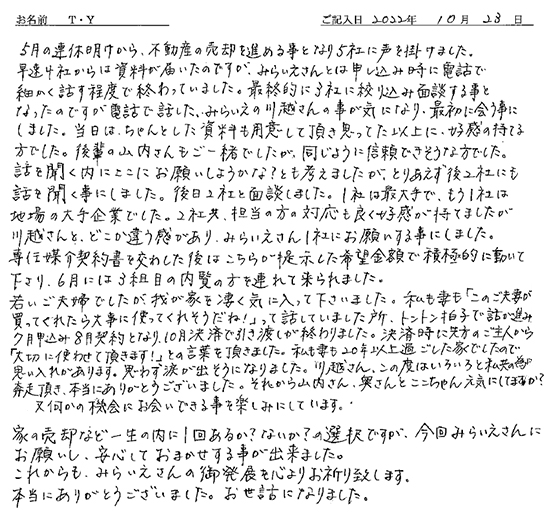 お名前 T・Y ご記入日 2022年 10月 23日
5月の連休明けから、不動産の売却を進める事となり5社に声を掛けました。
早速4社からは資料が届いたのですが、みらいえさんとは申し込み時に電話で
細かく話す程度で終わっていました。最終的に3社に絞り込み面談する事と
なったのですが電話で話した、みらいえの川越さんの事が気になり、最初に会う事に
しました。当日は、ちゃんとした資料も用意して頂き思ってた以上に、好感の持てる
方でした。後輩の山内さんもご一緒でしたが、同じように信頼できそうな方でした。
話を聞く内にここにお願いしようかな?とも考えましたが、とりあえず後2社にも
話を聞く事にしました。後日2社と面談しました。1社は最大手で、もう1社は
地場の大手企業でした。2社共、担当の方の対応も良く好感が持てましたが
川越さんと、どこか違う感があり、みらいえさん1社にお願いする事にしました。
専任媒介契約書を交めした後はこちらが提示した希望金額で積極的に動いて
下さり、6月には3組目の内覧の方を連れて来られました。
若いご夫婦でしたが我が家を凄く気に入って下さいました。私も妻も「このご夫妻が
買ってくれたら大事に使ってくれそうだね!」って話していました所、トントン拍子で話が進み
7月申込み8月契約となり、10月決済で引き渡しが終わりました。決済時に先方のご主人から
「大切に使わせて頂きます!」との言葉を頂きました。私も妻も20年以上過ごした家でしたので
思い入れがあります。思わず涙が出そうになりました。川越さん、この度はいろいろと私共の為に
奔走頂き、本当にありがとうございました。それから山内さん、奥さんとここちゃん元気にしてますか?
又何かの機会にお会いできる事を楽しみにしています。
家の売却など一生の内に1回あるか?ないか?の選択ですが、今回みらいえさんに
お願いし、安心しておまかせする事が出来ました。
これからも、みらいえさんの御発展を心よりお祈り致します。
本当にありがとうございました。お世話になりました。